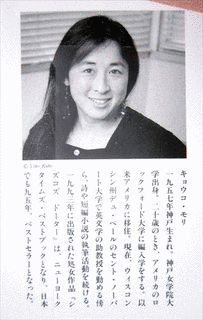 © Yōko Kubo
キョウコ・モリ
一九五七年神戸生まれ。神戸女学院大
学出身。二十歳のとき、アメリカのロ
ックフォード大学に編入学をする。以
来アメリカに移住。現在、ウィスコン
シン州デュ・ペールのセント・ノーバ
ート大学で英文学の助教授を勤める傍
ら、詩や短編小説の執筆活動を続ける。
一九九三年に出版された処女作品『シ
ズコズ ドーター』は、ニューヨーク
タイムズ・ベストブックとなり、日本
でも九五年、ベストセラーとなった。